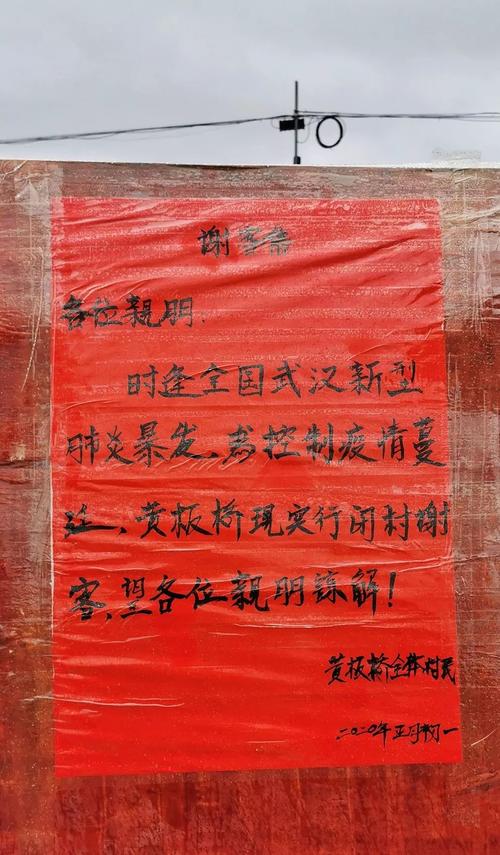 谢客条
各位親朋:
时逢全国武汉新型
肺炎暴发、为控制疫情蔓
延、黄板桥現实行闭村谢
客,望各位親朋諒解!
黄板桥全体村民
二〇二〇年正月初一